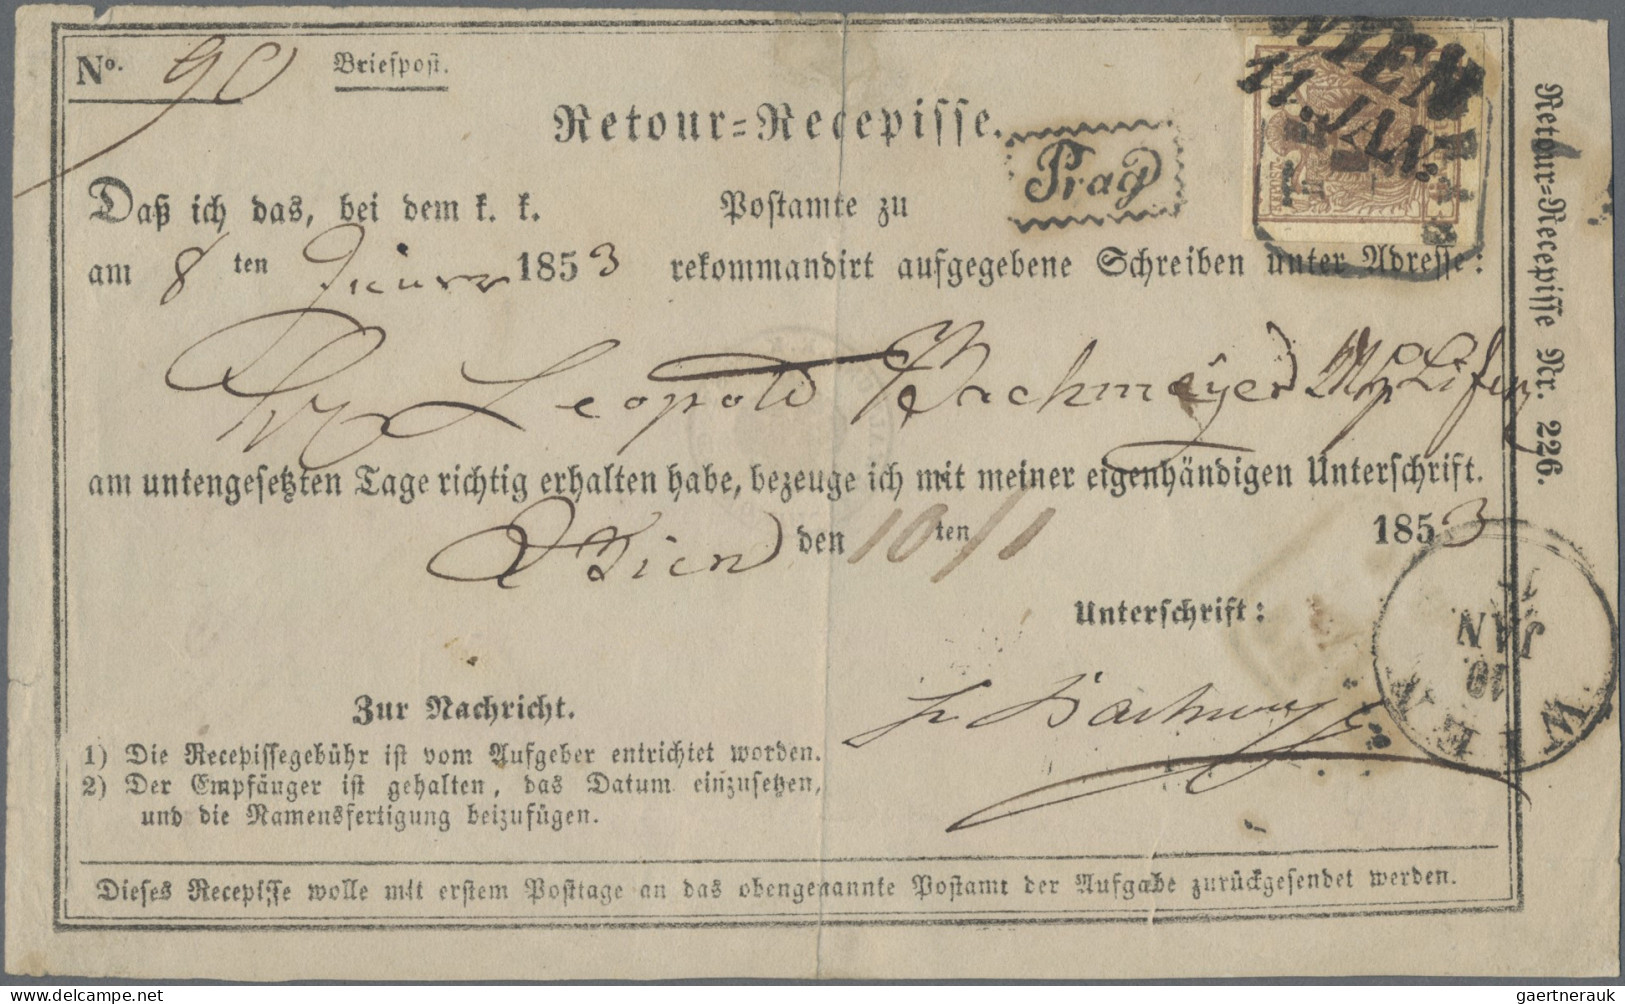 No. 90 Briefpost.
Retour=Recepisse.
WIEN
11. JAN.
Daß ich das, bei dem k. k. Postamte zu Prag
am 8 ten 1853 rekommandirt aufgegebene Schreiben unter Adresse:
Leopold Bachmayer
am untengesetzten Tage richtig erhalten habe, bezeuge ich mit meiner eigenhändigen Unterschrift.
Wien den 10ten/1 1853
Unterschrift:
WIEN
10
JAN
Zur Nachricht.
1) Die Recepissegebühr ist vom Aufgeber entrichtet worden.
2) Der Empfänger ist gehalten, das Datum einzusetzen,
und die Namensfertigung beizufügen.
Dieses Recepisse wolle mit erstem Posttage an das obengenannte Postamt der Aufgabe zurückgesendet werden.
Retour=Recepisse Nr. 226.
gaertnerauk